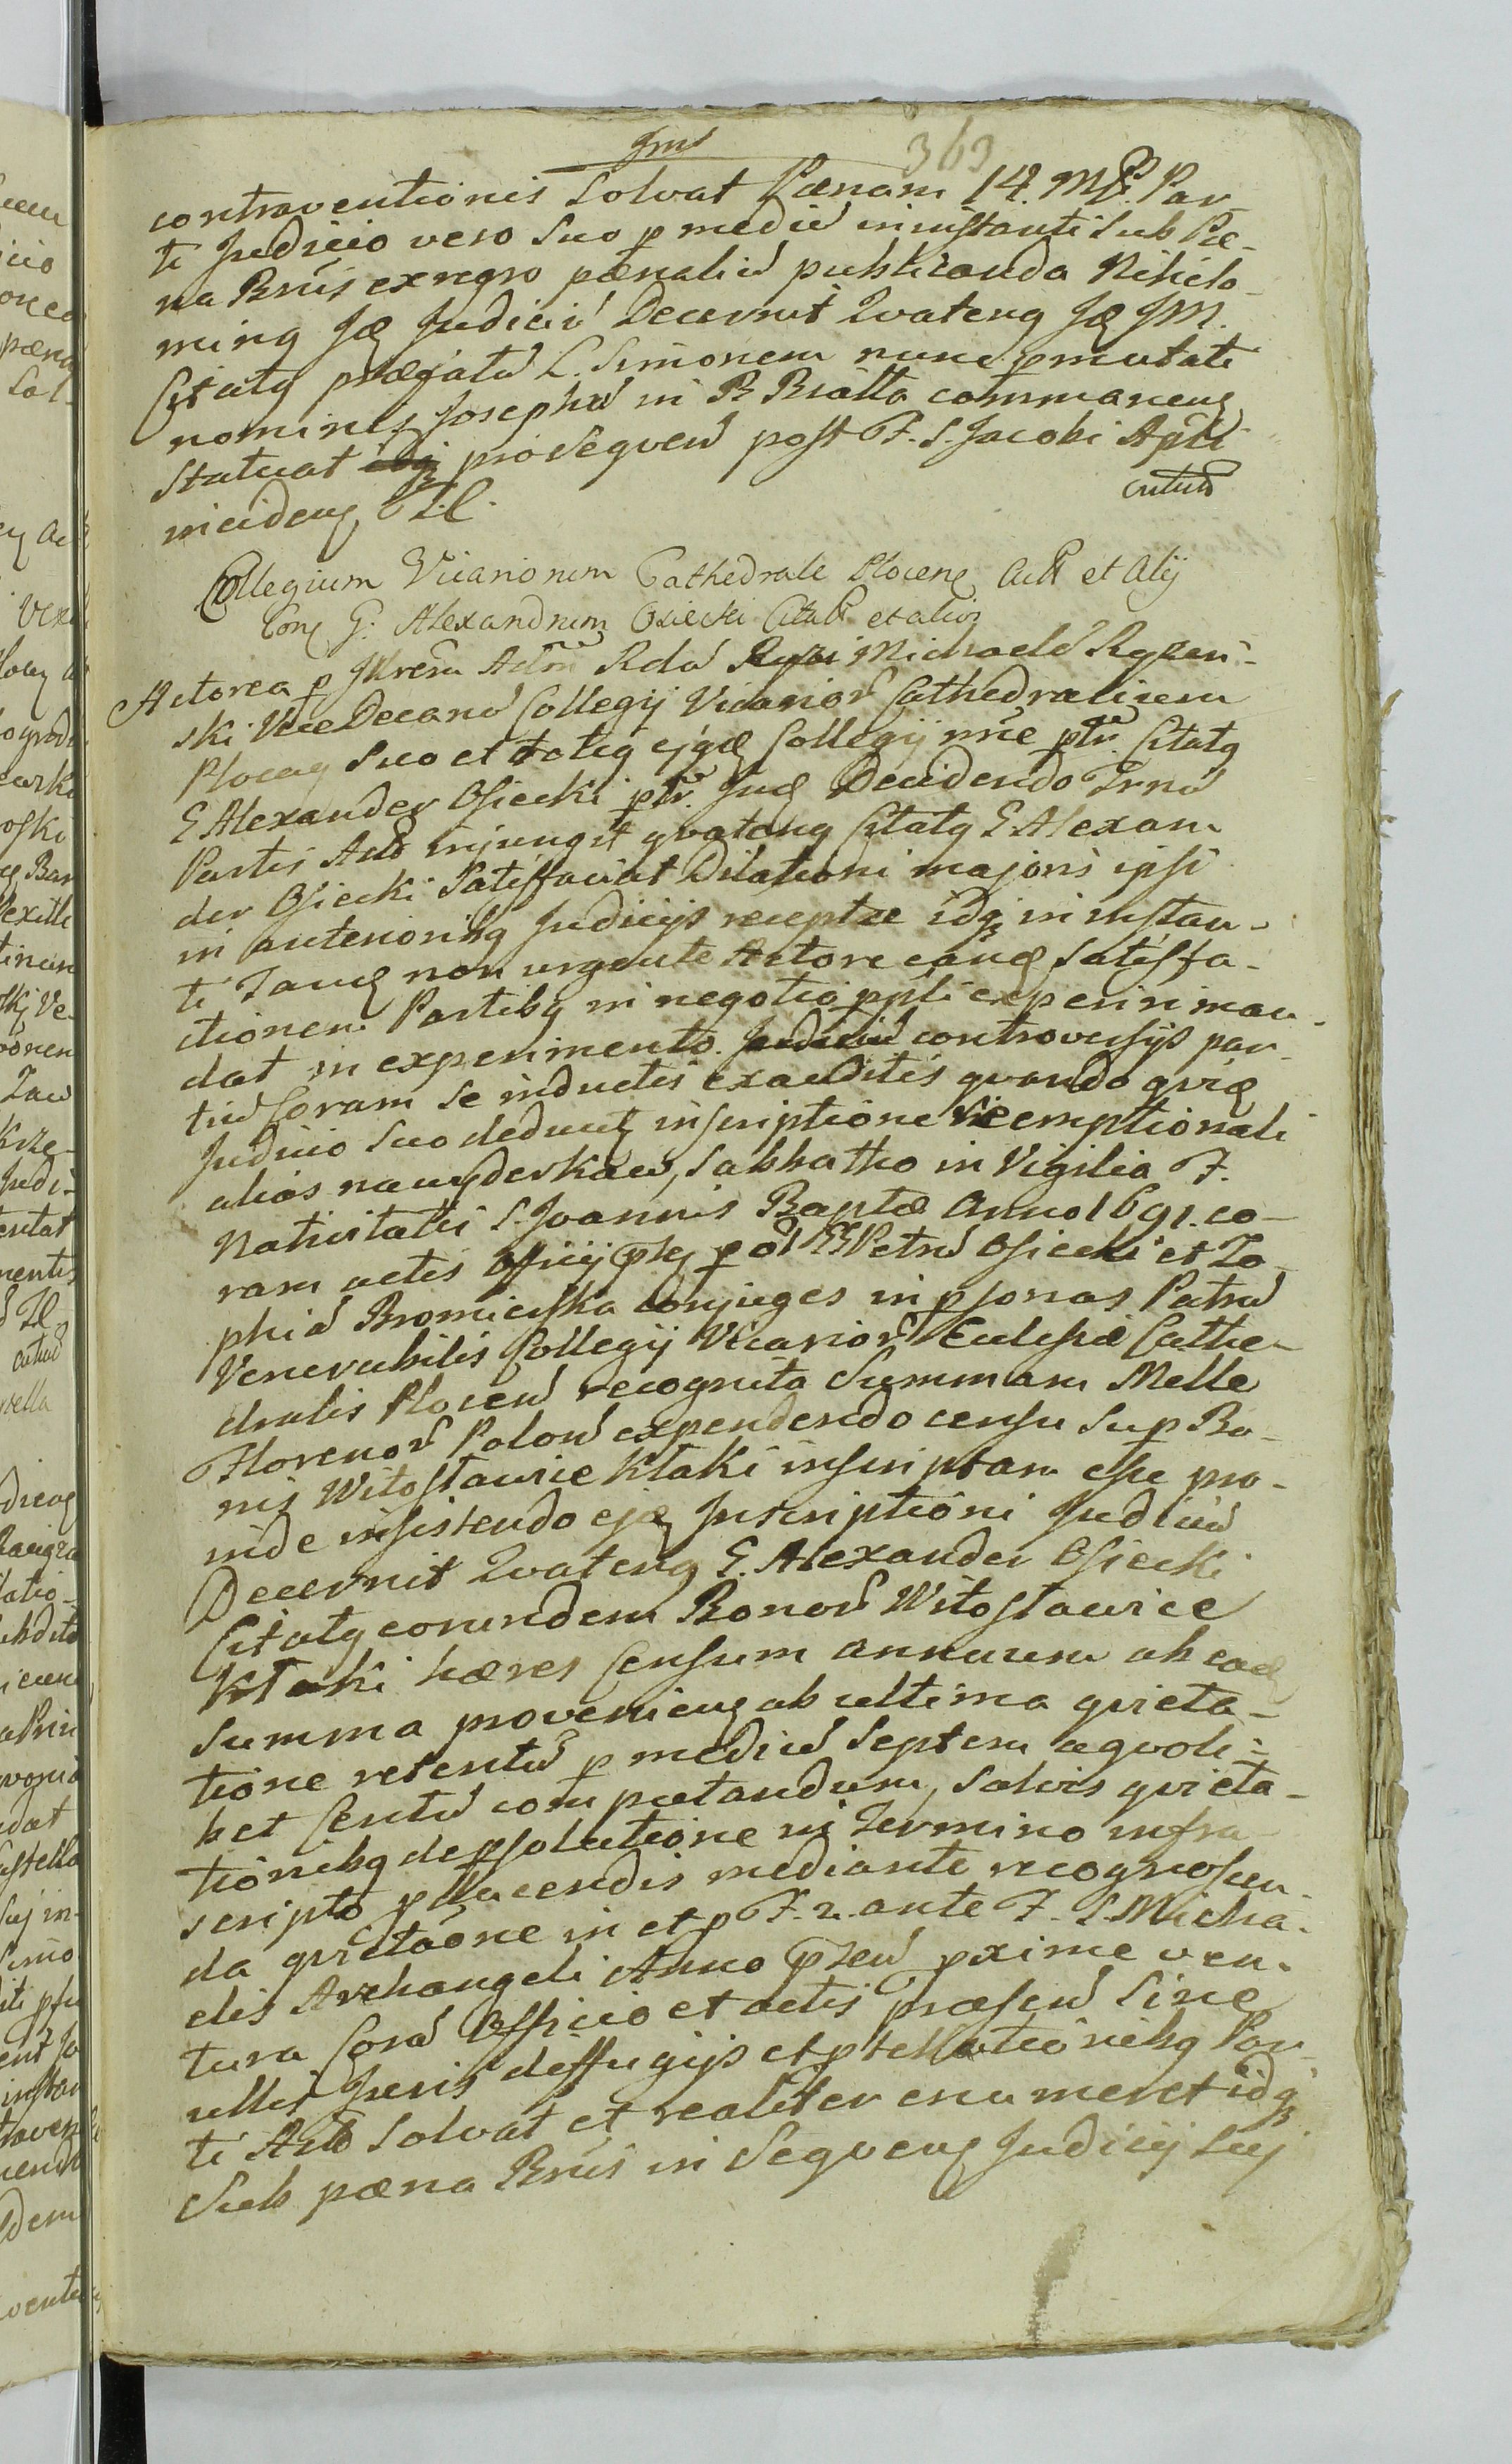 363
contraventionis Solvat Pœnam 14. M P. Par-
ti Judicio vero Suo p mediu in instanti Sub Pœ-
na Bnis ex regro pœnaliu publicanda Nihilo-
ming Judiciu Decernit Quateng JM.
Citatg præfatu L. Simonem nunc pmutati
nominis Josephu in B Biała commaneng
Statuat idq pro Seqven post F. S. Jacobi Apli
incideng Tl.
Collegium Vicariorum Cathedrale Plocens Act et Alij
Cong G. Alexandrum Osiecki Citat et alios
Actorea p Adm Rdu Michaele Rypin-
ski ViceDecanu Collegij Vicarior Cathedralium
Plocen Suo et totig ejgd Collegij nne ptr. Citatg
G Alexander Osiecki ptr. Jud Decidendo Trnu
Partis Act injungit qvateng Citatg G Alexan
der Osiecki Satisfaciat Dilationi majori ipsi
in anterioribg Judicijs receptæ idq in instan-
ti Tand non urgente Actore eand Satisfa-
ctionem Partibg in negotio ppli experiri man-
dat in experimento. Judiciu controversijs par-
tiu Coram Se inductis exauditis qvando qvid
Judicio Suo deducit inscriptione Reemptionali
alias na wyderkaw, Sabbatho in Vigilia F.
Nativitatis S. Joannis Baptæ Anno 1691. co-
ram actis Officij p GG Petru Osiecki et Zo-
phia Bromierska Conjuges in psonas Patru
Venerabilis Collegij Vicarior Eclesiæ Cathe-
dralis Plocen recognita Summam Mille
Florenor Polon expendendo censu Sup Bo-
nis Witosławice Kłaki inscriptam esse pro-
inde insistendo ejd Inscriptioni Judiciu
Decernit Qvateng G. Alexander Osiecki
Citatg eorundem Bonor Witosławice
Kłaki hæres Censum annuum ab ead
Summa provenieng ab ultima qvieta-
tione retentu p mediu Septem a qvoli-
bet Centu computandum, Salvis qvieta-
tionibg de psolutione in Termino infra
scripto pducendis mediante recognoscen-
da qvietaone in et p F. 2. ante F. S. Micha-
elis Archangeli Anno psen pxime ven-
tura Cora Officio et actis præsen Sine
ullis Juris diffugijs et ptellationibg Par-
ti Act Solvat et realiter enumeret idq
Sub pœna Bnis in Seqveng Judicij Suj